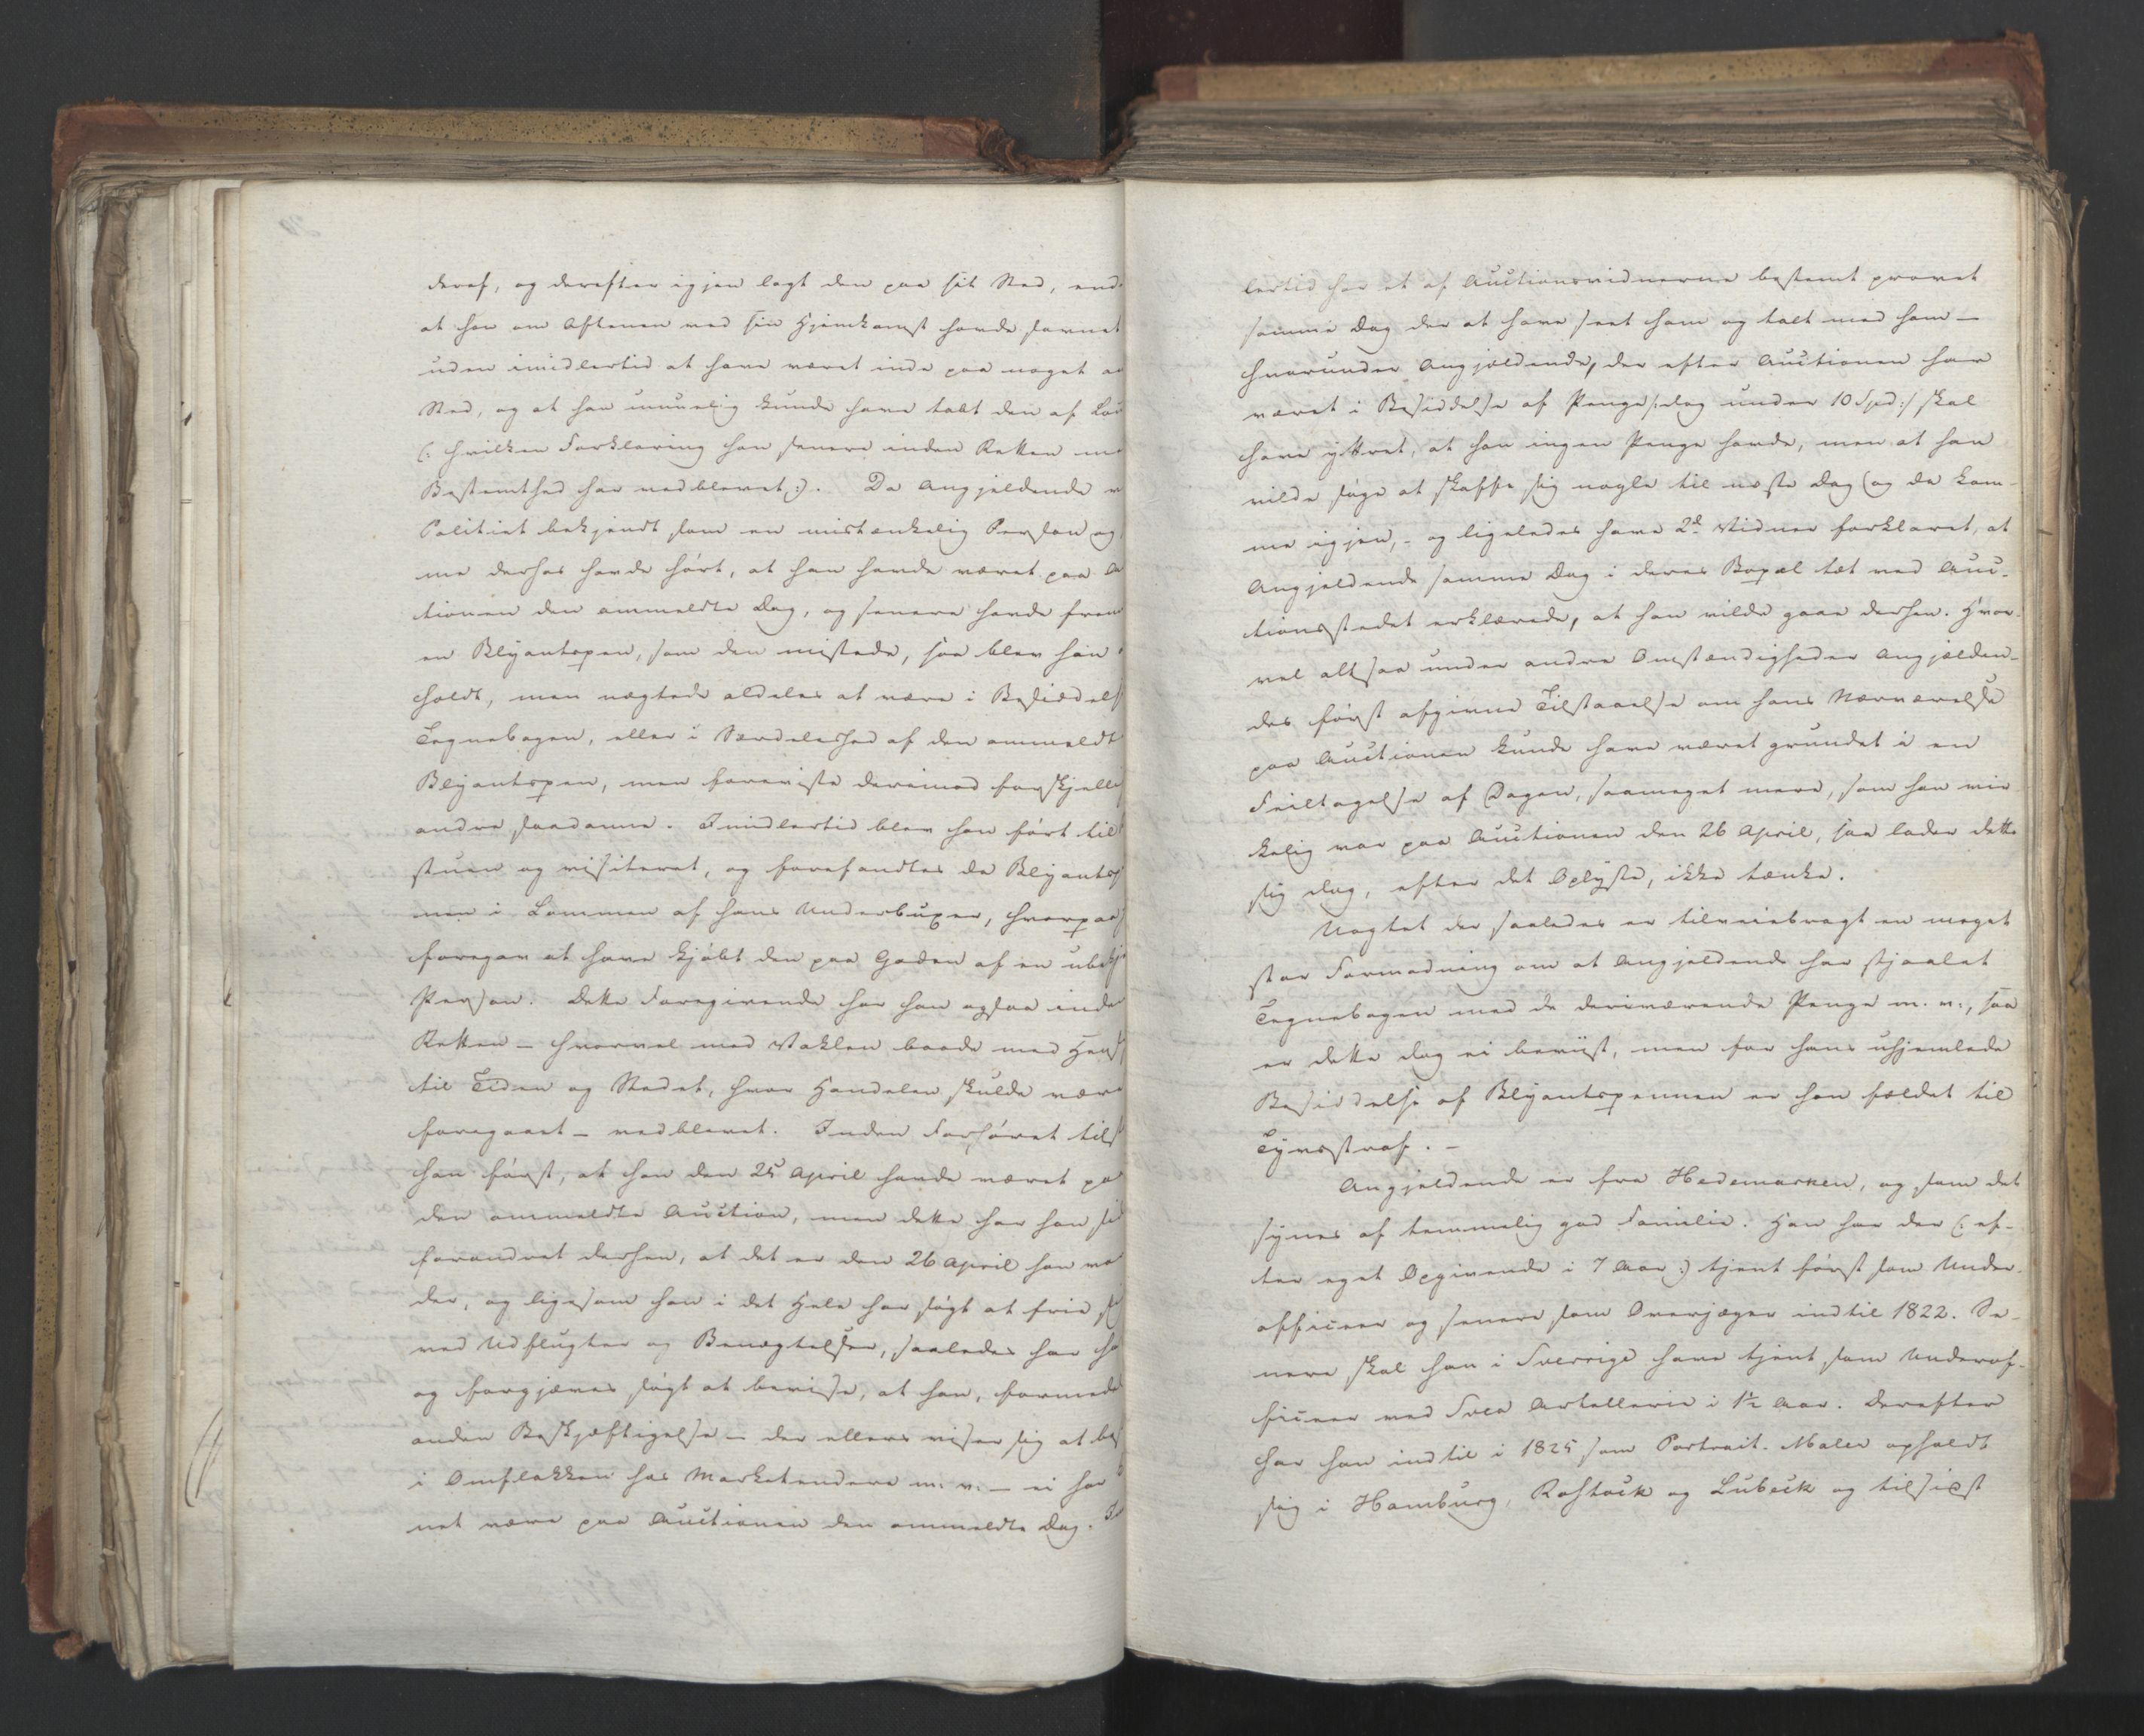 deraf, og derefter igjen lagt den paa sit Sted, end
at han om Aftenen ved sin Hjemkomst havde savnet
uden imidlertid at have været inde paa noget a
Sted, og at han umuelig kunde have tabt den af Lo
(: hvilken Forklaring han senere inden Retten me
Bestemthed har vedblevet :). Da Angjeldende v
Politiet bekjendt som en mistænkelig Person og
me derhos havde hørt, at han havde været paa A
tionen den ommeldte Dag, og senere havde frem
en Blyantspen, som den mistede, saa blev han
holdt, men nægtede aldeles at være i Besiddels
Tegnebogen, eller i Særdeleshed af den ommeldt
Blyantspen, men foreviste derimod forskjelli
andre saadanne. Imidlertid blev han ført til
stuen og visiteret, og forefandtes da Blyantsp
nen i Lommen af hans Underbuxer, hvorpaa
foregav at have kjøbt den paa Gaden af en ubekj
Person. Dette Foregivende har han ogsaa inde
Retten – hvorvel med Vaklen baade med Hens
til Tiden og Stedet, hvor Handelen skulde være
foregaaet – vedblevet. Inden Forhøret tils
han først, at han den 25 April havde været pa
den ommeldte Auction, men dette har han si
forandret derhen, at det er den 26 April han va
der, og ligesom han i det Hele har søgt at frie si
ved Udflugter og Benægtelser, saaledes har ha
og forgjæves søgt at bevise, at han, formede
anden Beskjæftigelse – der ellers viser sig at bes
i Omflakken hos Marketendere m. v. – ei har
net være paa Auctionen den ommeldte Dag. Im
lertid har et af Auctionsvidnerne bestemt provet
samme Dag der at have seet ham og talt med ham –
hvorunder Angjældende, der efter Auctionen har
været i Besiddelse af Penge /: dog under 10 Spd :/ skal
have yttret, at han ingen Penge havde, men at han
vilde søge at skaffe sig nogle til næste Dag (og da kom-
me igjen, – og ligeledes have 2de Vidner forklaret, at
Angjeldende samme Dag i deres Bopæl tæt ved Auc-
tionsstedet erklærede, at han vilde gaae derhen. Hvor-
vel altsaa under andre Omstændigheder Angjælden-
des først afgivne Tilstaaelse om hans Nærværelse
paa Auctionen kunde have været grundet i en
Feiltagelse af Dagen, saameget mere, som han vir
kelig var paa Auctionen den 26 April, saa lader dette
sig dog, efter det Oplyste, ikke tænke.
Uagtet der saaledes er tilveiebragt en meget
stor Formodning om at Angjeldende har stjaalet
Tegnebogen med de deriværende Penge m. v., saa
er dette dog ei beviist, men for hans uhjemlede
Besiddelse af Blyantspennen er han fældet til
Tyvsstraf. –
Angjeldende er fra Hedemarken, og som det
synes af temmelig god Familie. Han har der (: ef-
ter eget Opgivende i 7 Aar :) tjent først som Under-
officeer og senere som Overjæger indtil 1822. Se-
nere skal han i Sverrige have tjent som Underof-
ficeer ved Svea Artellerie i 1½ Aar. Derefter
har han indtil i 1825 som Portrait-Maler opholdt
sig i Hamburg, Rostock og Lubeck og tilsidst